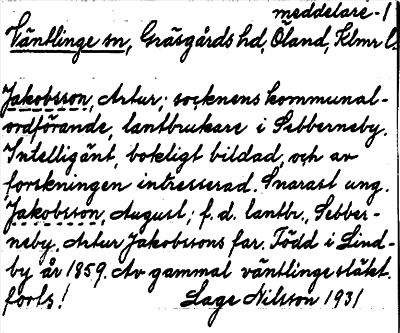 meddelare-1
Väntlinge sn, Gräsgårds hd, Öland, Klmr l.
Jakobsson, Artur; socknens kommunal-
ordförande, lantbrukare i Sebberneby.
Intelligänt, bokligt bildad, och av
forskningen intresserad. Snarast ung.
Jakobsson, August; f.d. lantbr., Sebber-
neby. Artur Jakobssons far. Född i Lind-
by år 1859. Av gammal väntlingesläkt.
forts!
Lage Nilsson 1931